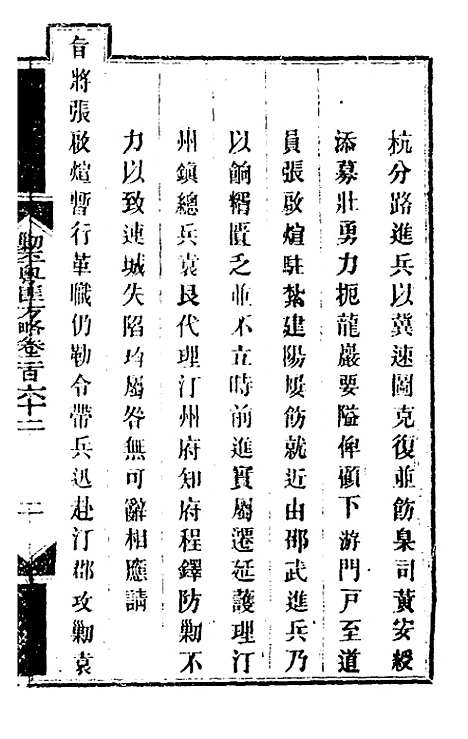 杭分路進兵以冀速圖克復並飭臬司黃安綬
添募壯勇力扼龍巖要隘俾顧下游門戸至道
員張啟煊駐紮建陽屢飭就近由邵武進兵乃
以餉糈匱乏並不立時前進實屬遷延護理汀
州鎮總兵袁艮代理汀州府知府程鐸防勦不
力以致連城失陷均屬咎無可辭相應請
旨將張啟煊暫行革職仍勒令帶兵迅赴汀郡攻勦袁
勦平粵匪方略卷一百六十二 二